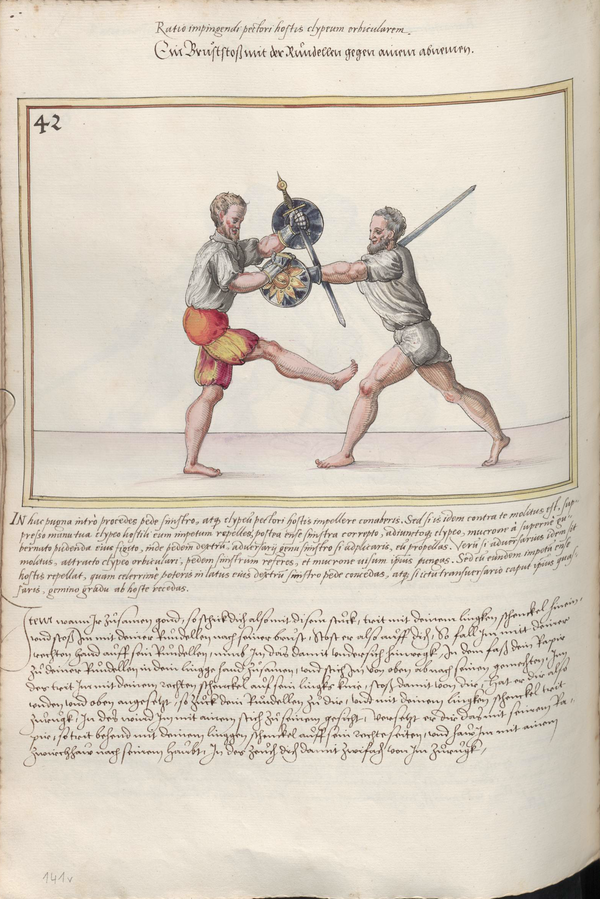 Ratio impingendi pectori hostis clypeum orbicularem
Ein Bruststoß mit der Rundellen gegen ainem abnemen.
42
IN hac pugna intrò procedes pede sinistro, atq. clypeū pectori hostis impellere conaberis. Sed si is idem contra te molitus est, sup=
presso manu tua clypeo hostili eum impetum repelles, postea ense sinistra correpto, adiunctoq. clypeo, mucrone à superne su
pernato pudenda eius figito, inde pedem dextrū adversarij genu sinistro si adplicaris, eū propellas. Verū si adversarius idem sit
molitus, attracto clypeo orbiculari, pedem sinistrum referes, et mucrone visum ipsius pungas. Sed si eundem impetū ense
hostis repellat, quam celerrime poteris in latus eius dextrū sinistro pede concedas, atq. si ictu transversario caput ipsius quas=
saris, gemino gradu ab hoste recedas.
Item wann Ir zusamen gond, so schick dich also mit disem stuck, trit mit deinem lingken schenckel hinein,
vnd stos Im mit deiner Rundellen nach seiner brust, Stost er also auff dich, So fall Im mit deiner
rechten hand auff sein Rundellen, In dem fass dein Rapir
zu deiner Rundellen in dein lingge hand zusamen, vnd stich Im von oben ab nach seinen gemechten, Im
der trit Im mit deinem rechten schenckel auf sein lingks knie, stoss damit von dir, Hat er dir also
widen vnd oben angesetzt, so zuck dein Rundellen zu dir, vnd mit deinem lingken schenckel trit
zurugk, In des wind Im mit ainem stich zu seinem gesicht, Versetzt er dir das mit seinem Ra=
pir, so trit behend mit deinem linggen schenckel auff sein rechte seiten, vnd haw Im mit ainem
zwirchhaw nach seinem haubt, In des zeuch dich damit zwifach von Im zurugk,
141v